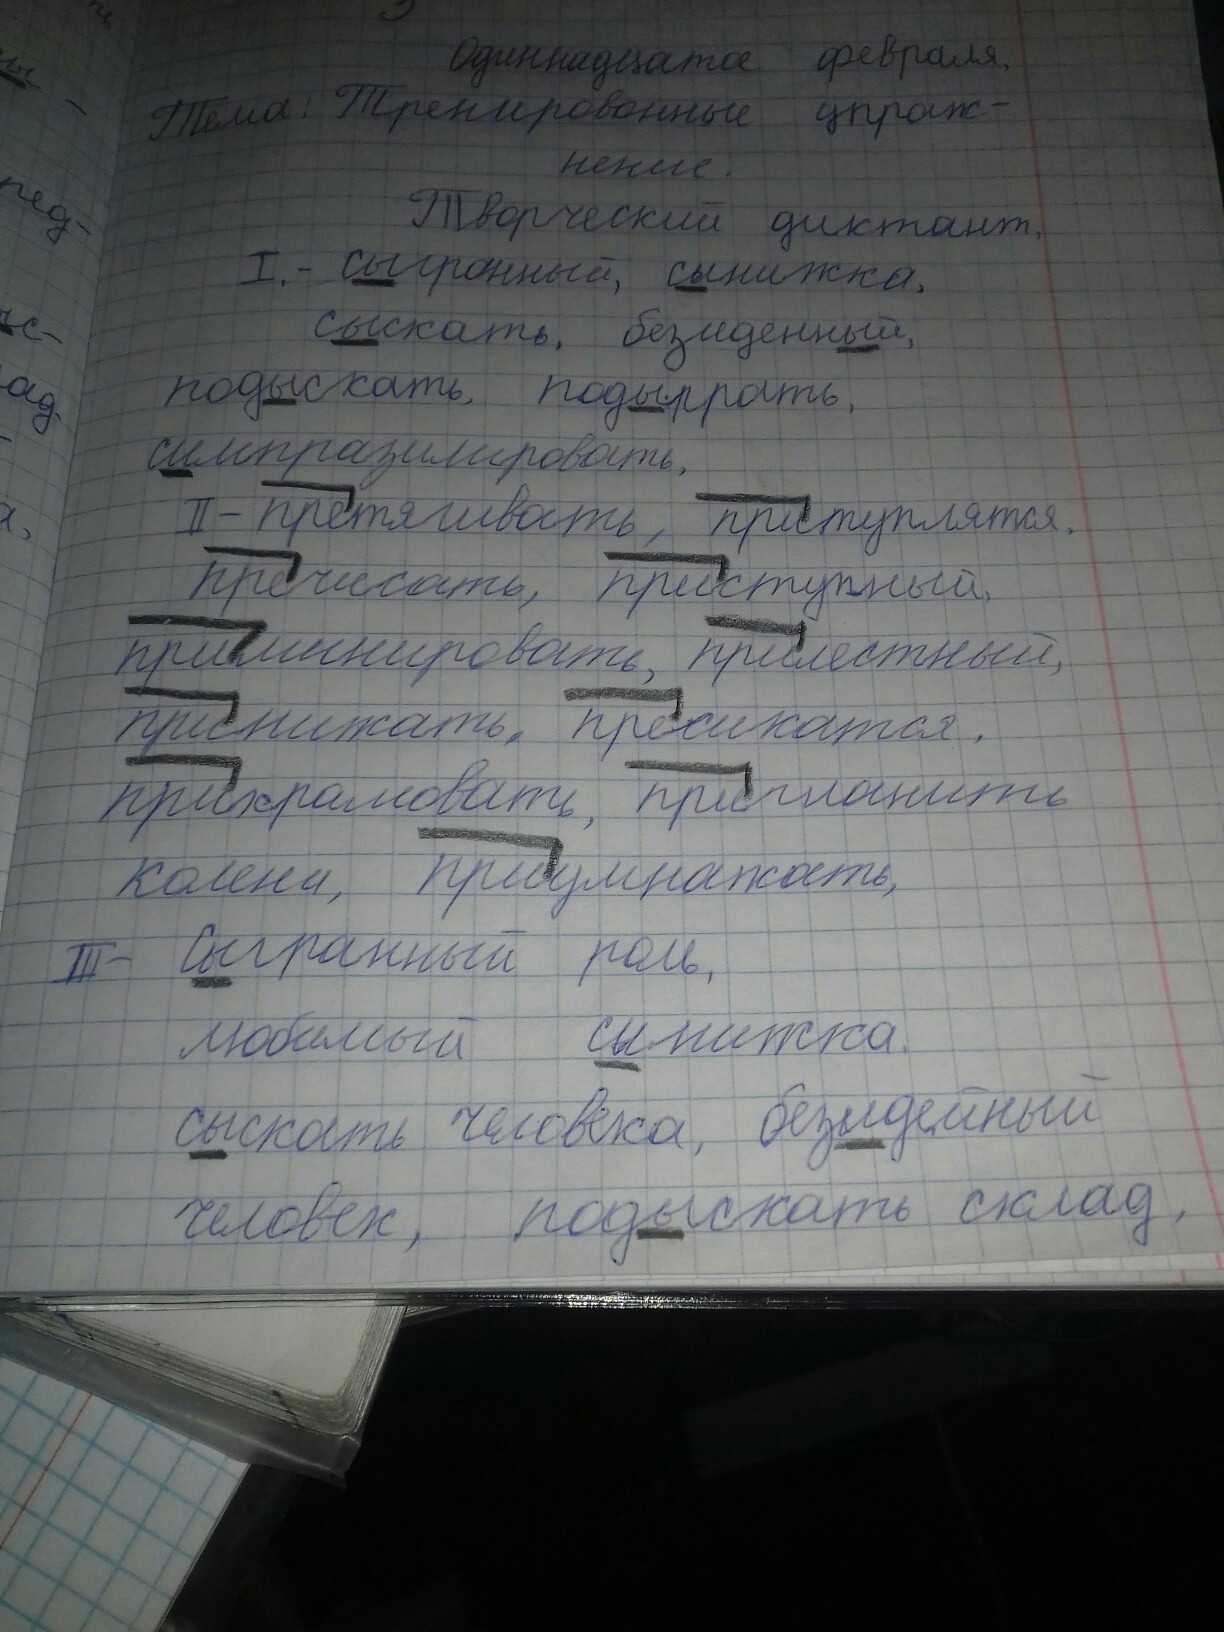 Одиннадцатое февраля.
Тема: Тренировонные упраж-
нение.
Творческий диктант.
I. - сыгранный, сынижка,
сыскать, безиденный,
подыскать, подыррать,
симпразилировать,
II - претягивать, приступлятся.
пречисать, приступный,
приминировать, прилестный,
приснижать, пресикатся.
прихрамовать, пригланить
колени, приумнажать,
III - Сыгранный роль,
любимый сынижка.
сыскать человека, безидейный
человек, подыскать склад,